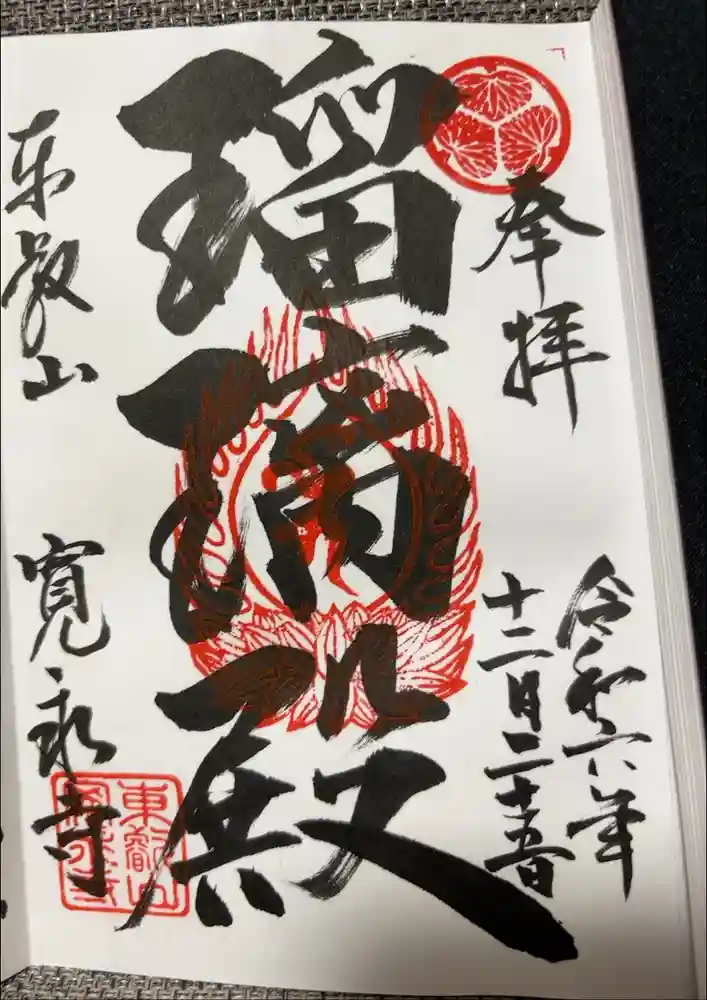 奉拝
令和六年
十二月二十五日
瑠璃殿
東叡山
寛永寺
東叡山
寛永寺